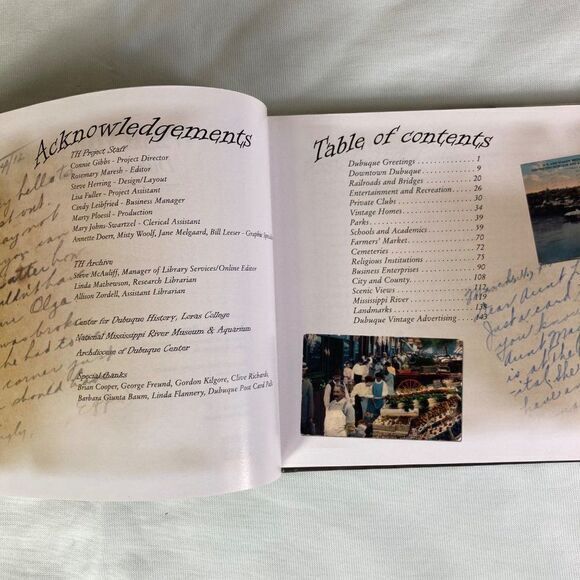 Acknowledgements
TH Project Staff
Connie Gibbs - Project Director
Rosemary Maresh - Editor
Steve Herring - Design/Layout
Lisa Fuller - Project Assistant
Cindy Leibfried - Business Manager
Marty Ploessl - Production
Mary Johns-Swartzel - Clerical Assistant
Annette Doerr, Misty Woolf, Jane Melgaard, Bill Leeser - Graphic
TH Archive
Steve McAuliff, Manager of Library Services/Online Editor
Linda Mathewson, Research Librarian
Allison Zordell, Assistant Librarian
Center for Dubuque History, Loras College
National Mississippi River Museum & Aquarium
Archdiocese of Dubuque Center
Special thanks
Brian Cooper, George Freund, Gordon Kilgore, Clive Richards,
Barbara Giunta Baum, Linda Flannery, Dubuque Post Card
Table of contents
Dubuque Greetings . . . . . . . . . . . . . . 1
Downtown Dubuque . . . . . . . . . . . . . . 9
Railroads and Bridges . . . . . . . . . . . . . . 20
Entertainment and Recreation . . . . . . . . 26
Private Clubs . . . . . . . . . . . . . . 30
Vintage Homes . . . . . . . . . . . . . . 34
Parks . . . . . . . . . . . . . . 39
Schools and Academies . . . . . . . . . . . . . . 59
Farmers' Market . . . . . . . . . . . . . . 70
Cemeteries . . . . . . . . . . . . . . 72
Religious Institutions . . . . . . . . . . . . . . 75
Business Enterprises . . . . . . . . . . . . . . 90
City and County . . . . . . . . . . . . . . 108
Scenic Views . . . . . . . . . . . . . . 112
Mississippi River . . . . . . . . . . . . . . 119
Landmarks . . . . . . . . . . . . . . 138
Dubuque Vintage Advertising . . . . . . . . 143
Dear Aunt
you know
is at the